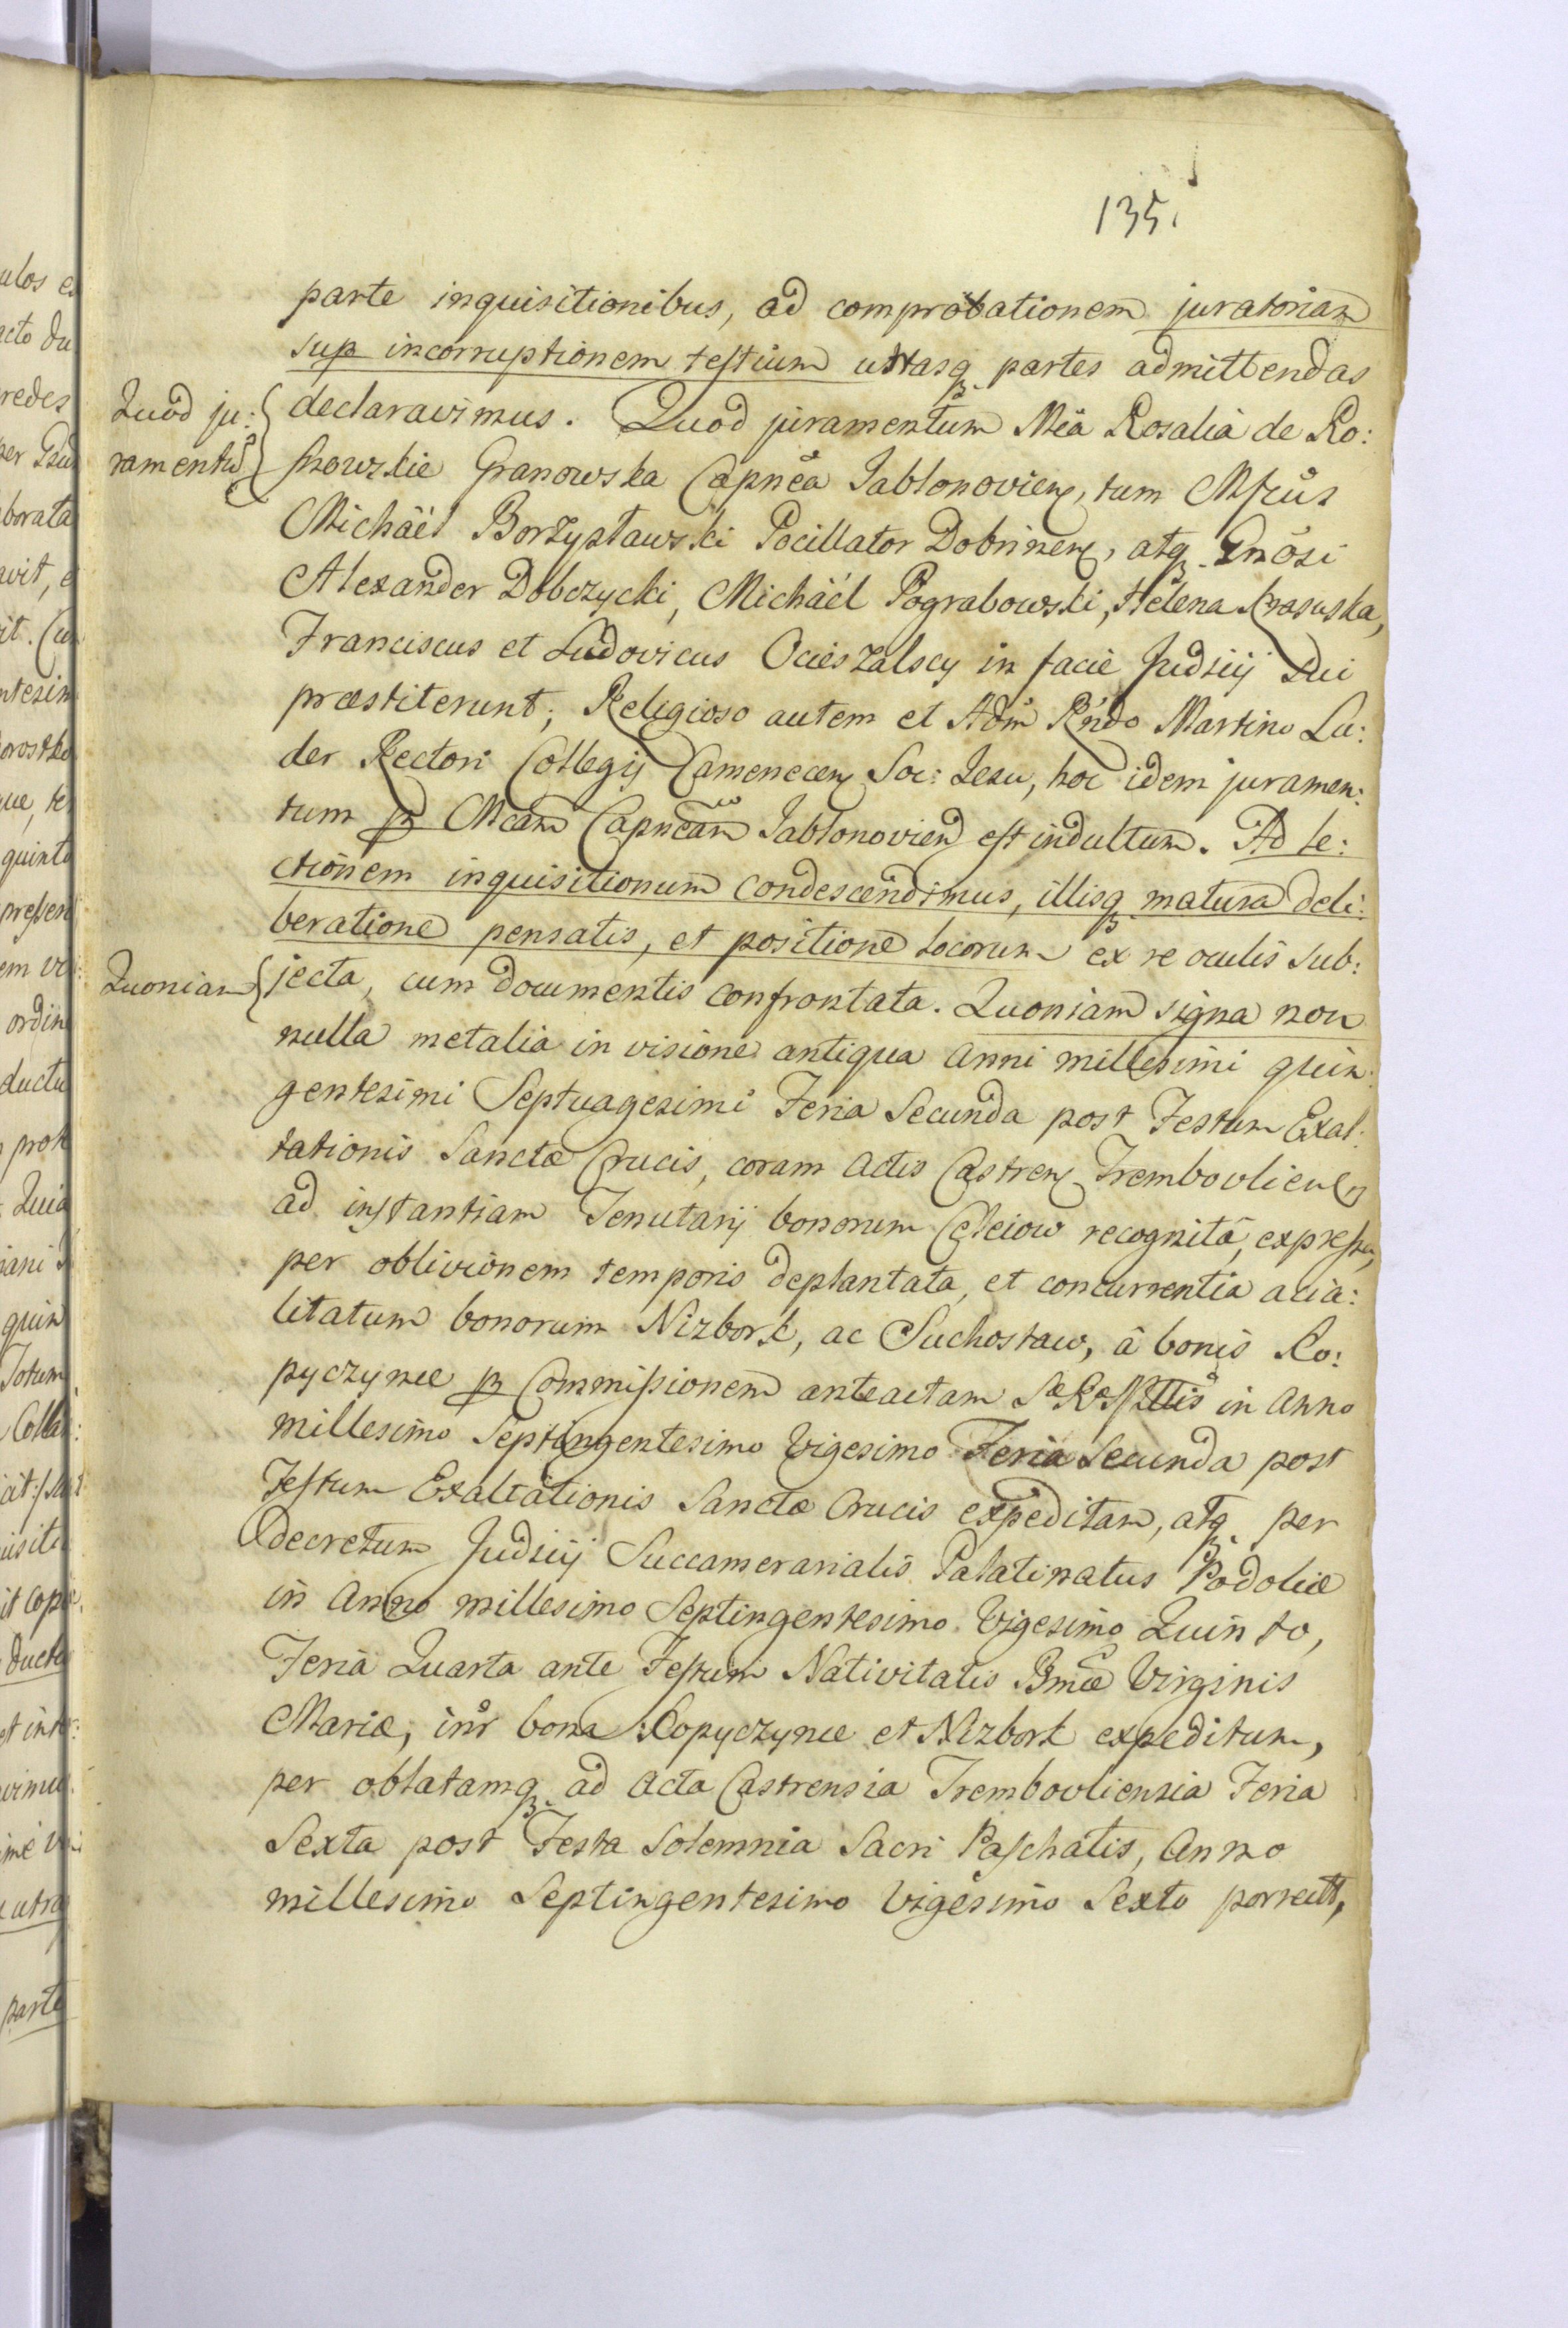 135.
parte inquisitionibus, ad comprobationem juratoriam
sup incorruptionem testium utrasq partes admittendas
Quod ju: declaravimus. Quod juramentum Mca Rosalia de Ro:
ramentũ Granowska Capnea Jablonovien, tum Mfcus
Michäél Borzysławski Pocillator Dobrinen, atq Gnosi
Alexander Dobczycki, Michäél Pograbowski, Helena Krasuska,
Franciscus et Ludovicus Ocieszalscy in facie Judicij sui
præstiterunt; Religioso autem et Adm Rndo Martino La:
der Rectori Collegij Camenecen Soc: Jesu, hoc idem juramen:
tum Mcam Capneam Jablonovien est indultum. Ad le:
ctionem inquisitionum condescendimus, illisq matura deli:
beratione pensatis, et positione locorum ex re oculis sub:
Quoniam jecta, cum documentis confrontata. Quoniam signa non
nulla metalia in visione antiqua Anni millesimi quin:
gentesimi Septuagesimi Feria Secunda post Festum Exal:
tationis Sanctæ Crucis, coram Actis Castren Trembovlien
ad instantiam Tenutarij bonorum recognita, expressa,
per oblivionem temporis deplantata, et concurrentia acia:
litatum bonorum Nizbork, ac Suchostaw, â bonis Ko:
pyczynce Commissionem anteactam in Anno
millesimo Septingentesimo Vigesimo Feria Secunda post
Festum Exaltationis Sanctæ Crucis expeditam, atq per
decretum Judicij Succamerarialis Palatinatus Podoliæ
in Anno millesimo Septingentesimo Vigesimo Quinto,
Feria Quarta ante Festum Nativitatis Bmæ Virginis
Mariæ, intr bona Kopyczynce et Nizbork expeditum,
per oblatamq ad Acta Castrensia Trembovliensia Feria
Sexta post Festa Solemnia Sacri Paschatis, Anno
millesimo Septingentesimo Vigesimo Sexto porrect,